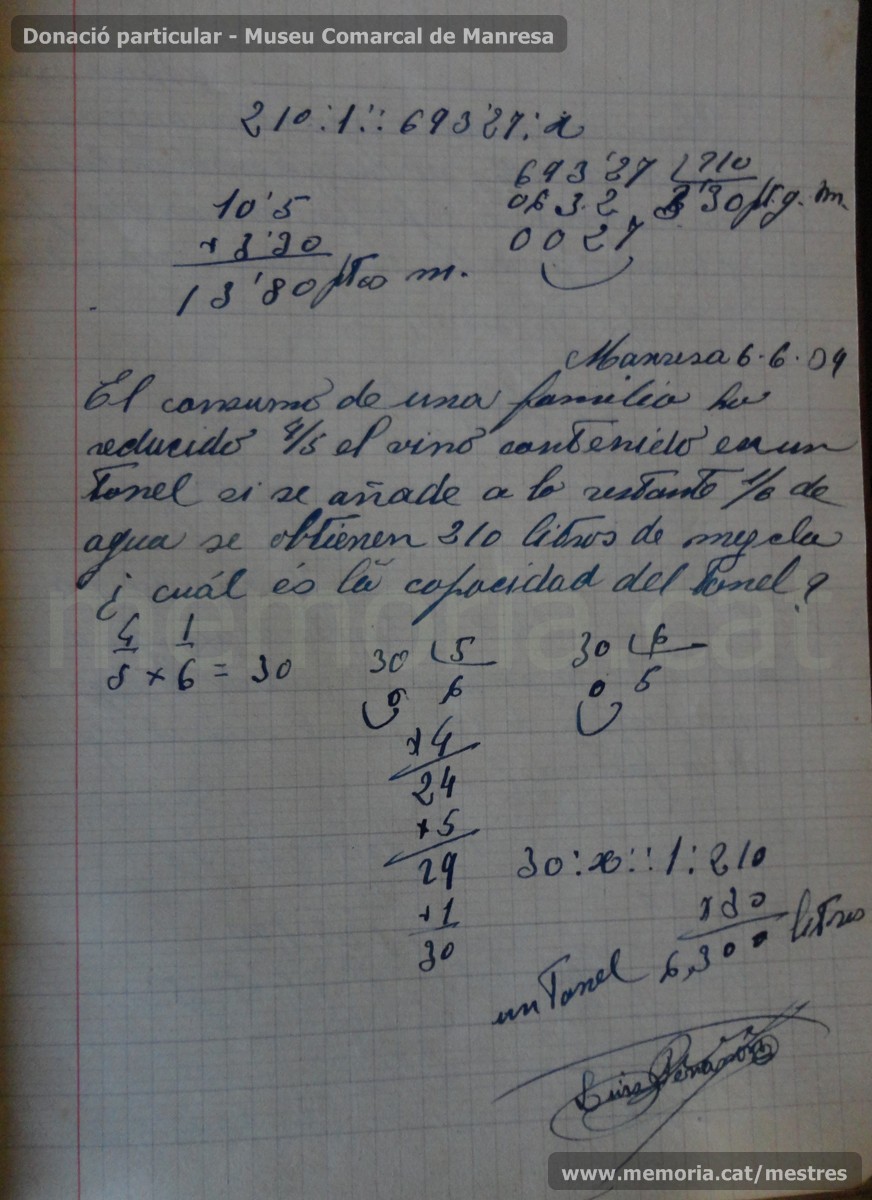 Donació particular - Museu Comarcal de Manresa
210:1::693'27:x
693'27 210
10'5 063.2 3'30 pt. g. m.
+3'30 0027
13'80 ptas m.
Manresa 6.6.09
El consumo de una familia ha
reducido 4/5 el vino contenido en un
tonel si se añade a lo restante 1/6 de
agua se obtienen 210 litros de mezcla
¿cuál és la capacidad del tonel?
4/5 × 1/6 = 30
30 5 30 6
0 6 0 5
×4
24
+5
29 30:x::1:210
+1 ×30
30 un tonel 6,300 litros
Luis
memoria.cat
www.memoria.cat/mestres